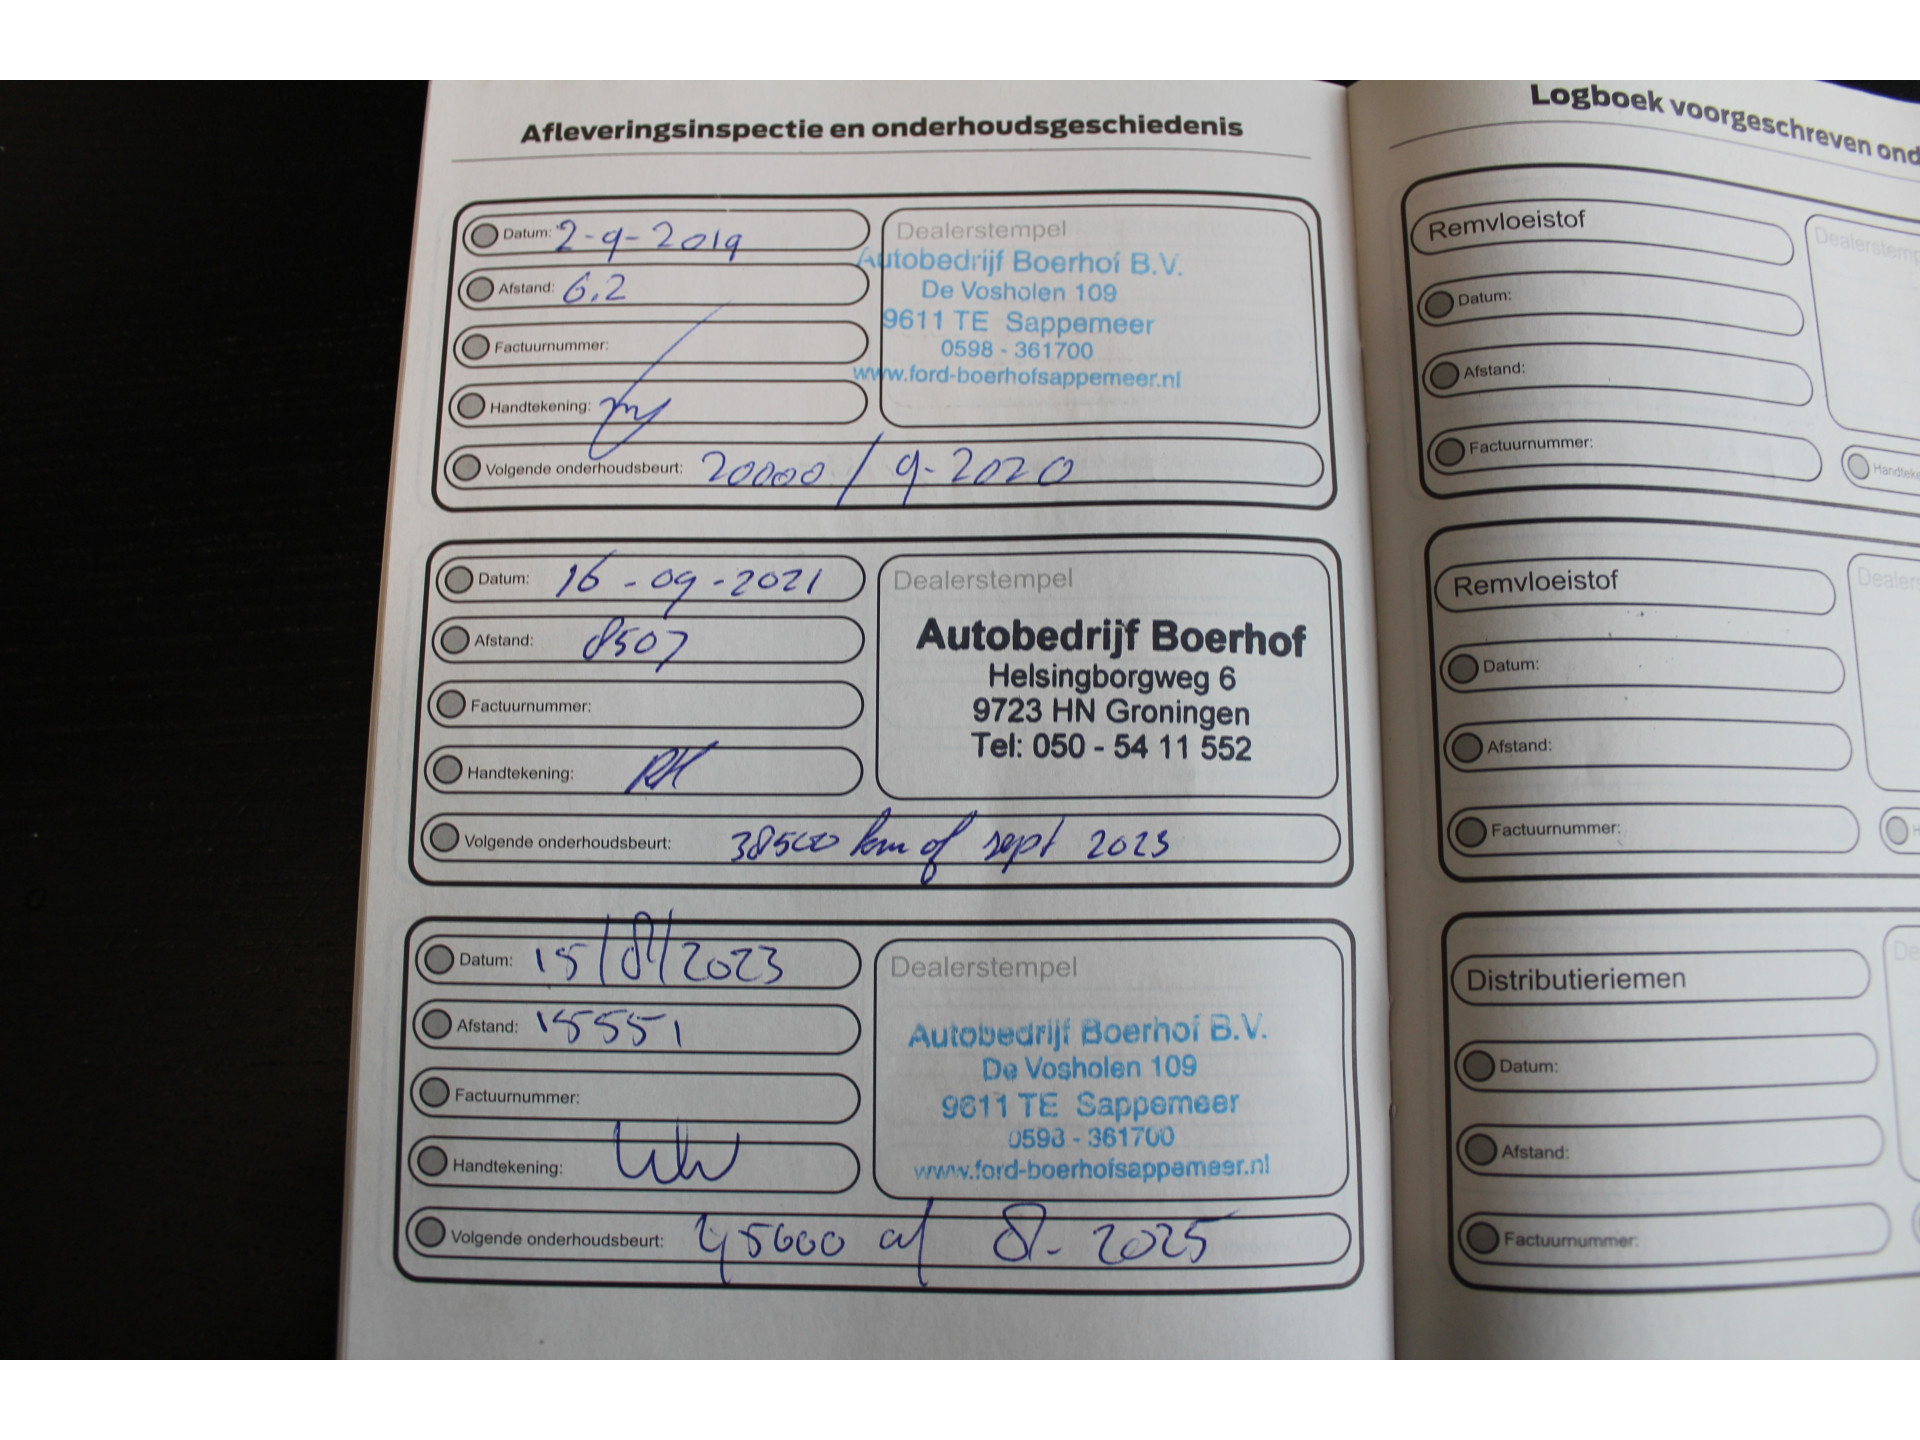 Afleveringsinspectie en onderhoudsgeschiedenis
Datum: 2-9-2019
Afstand: 6.2
Factuurnummer:
Handtekening:
Volgende onderhoudsbeurt: 20000 / 9-2020
Dealerstempel
Autobedrijf Boerhof B.V.
De Vosholen 109
9611 TE Sappemeer
0598 - 361700
www.ford-boerhofsappemeer.nl
Datum: 16-09-2021
Afstand: 8507
Factuurnummer:
Handtekening:
Volgende onderhoudsbeurt: 38500 km of sept 2023
Dealerstempel
Autobedrijf Boerhof
Helsingborgweg 6
9723 HN Groningen
Tel: 050 - 54 11 552
Datum: 15/8/2023
Afstand: 15551
Factuurnummer:
Handtekening:
Volgende onderhoudsbeurt: 45600 of 8-2025
Dealerstempel
Autobedrijf Boerhof B.V.
De Vosholen 109
9611 TE Sappemeer
0598 - 361700
www.ford-boerhofsappemeer.nl
Logboek voorgeschreven ond
Remvloeistof
Datum:
Afstand:
Factuurnummer:
Dealerstemp
Handteke
Remvloeistof
Datum:
Afstand:
Factuurnummer:
Dealers
H
Distributieriemen
Datum:
Afstand:
Factuurnummer:
De